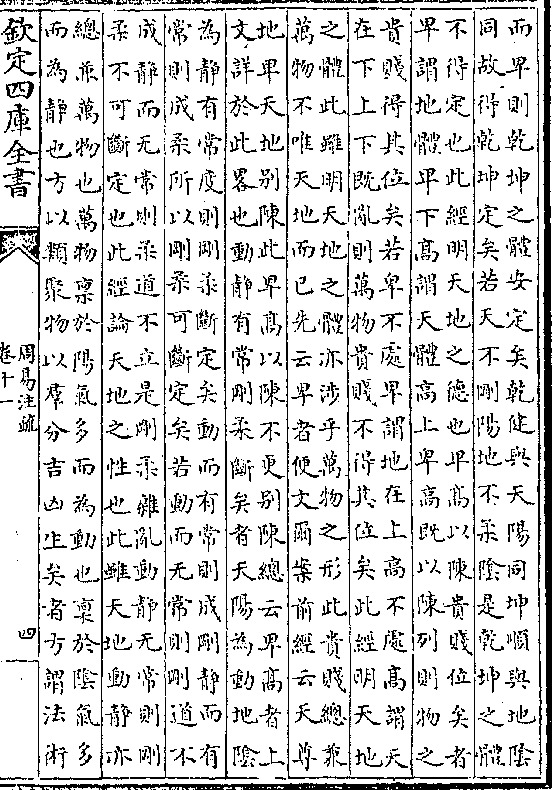 而卑則乾坤之體安定矣乾健與天陽同坤順與地陰
同故得乾坤定矣若天不剛陽地不柔陰是乾坤之體
不得定也此經明天地之德也卑髙以陳貴賤位矣者
卑謂地體卑下髙謂天體髙上卑髙既以陳列則物之
貴賤得其位矣若卑不處卑謂地在上髙不處髙謂天
在下上下既亂則萬物貴賤不得其位矣此經明天地
之體此雖明天地之體亦涉乎萬物之形此貴賤總兼
萬物不唯天地而已先云卑者便文爾案前經云天尊
地卑天地别陳此卑髙以陳不更别陳總云卑髙者上
文詳於此畧也動静有常剛柔斷矣者天陽為動地陰
為静有常度則剛柔斷定矣動而有常則成剛静而有
常則成柔所以剛柔可斷定矣若動而无常則剛道不
成静而无常則柔道不立是剛柔雜亂動静无常則剛
柔不可斷定也此經論天地之性也此雖天地動静亦
總兼萬物也萬物禀於陽氣多而為動也禀於陰氣多
而為静也方以類聚物以羣分吉凶生矣者方謂法術
欽定四庫全書
周易注疏
卷十一
四